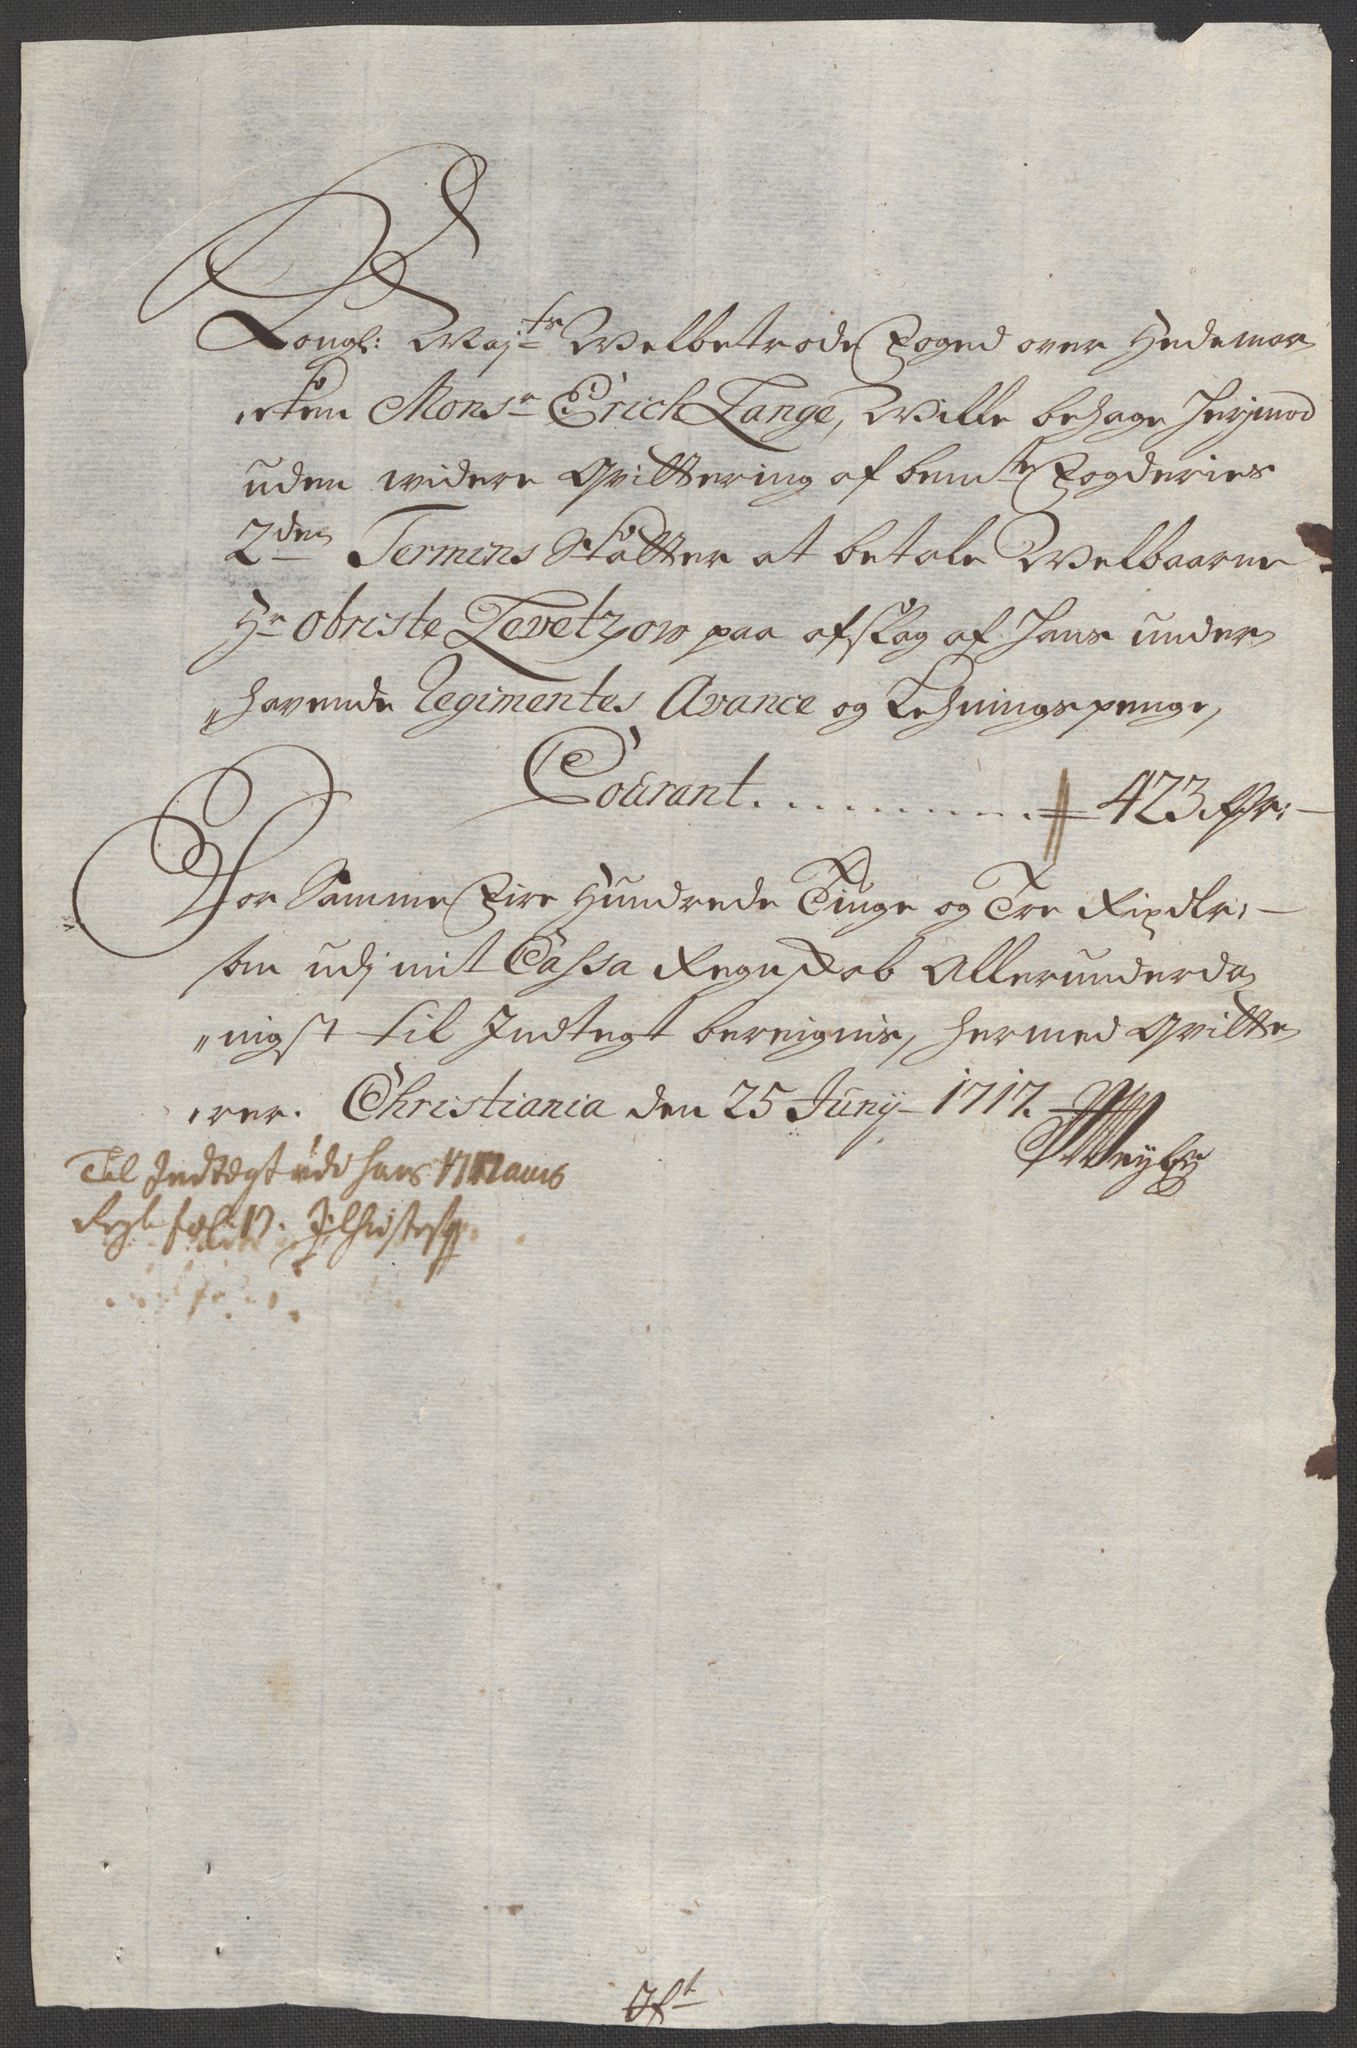 Kongl: Maj:ts Welbetrode Foged over Hedemar
"cken Mons:r Erich Lange, Wille behage herjmod
uden widere Qvittering af bem:te Fogderies
2den Termins Skatter at betale Welbaarne
H:r Obriste Levetzow paa afslag af hans under
"havende Regimentes Avance og Lehningspenge,
Courant . . . . . . . . . 423 Rdr: —
For Samme Fire Hundrede Tiuge og Tre Rixdlr: —
som udj mit Cassa Regnskab Allerunderda
"nigst til Indtegt bereignis, hermed Qvitte
"rer. Christiania den 25 Junÿ 1717.
Til Indtegt udi hans 1717 aars
Regl: fol: 17.